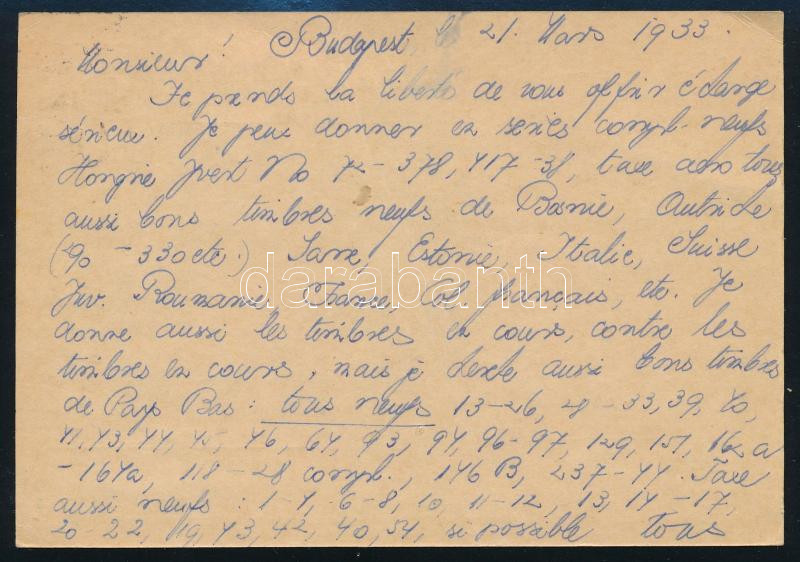 Budapest, le 21. Mars 1933.
Monsieur!
Je prends la liberté de vous offrir échange
sérieux. Je peux donner en series compl. neufs
Hongrie Yvert No 72-378, 417-38, taxe aero tous
aussi bons timbres neufs de Bosnie, Autriche
(90-330 etc.) Sarre, Estonie, Italie, Suisse
Juv. Roumanie, France, Col. français, etc. Je
darabanth
donne aussi les timbres en cours, contre les
timbres en cours, mais je cherche aussi bons timbres
de Pays Bas: tous neufs 13-26, 28-33, 39, 40,
41, 43, 44, 45, 46, 64, 93, 94, 96-97, 129, 151, 162a
-164a, 118-28 compl., 146B, 237-44. Taxe
aussi neufs: 1-4, 6-8, 10, 11-12, 13, 14-17,
20-22, 19, 43, 42, 40, 54, si possible tous